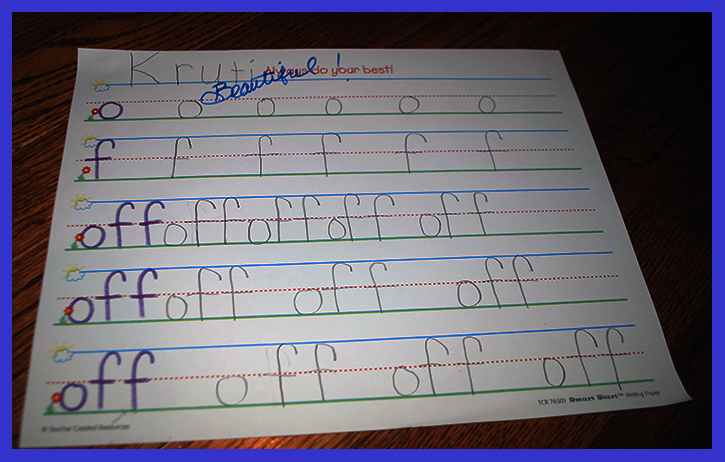 Kruti Always do your best!
Beautiful!
o o o o o o
f f f f f f
off off off off off
off off off off
off off off off
© Teacher Created Resources TCR 76501 Smart Start™ Writing Paper